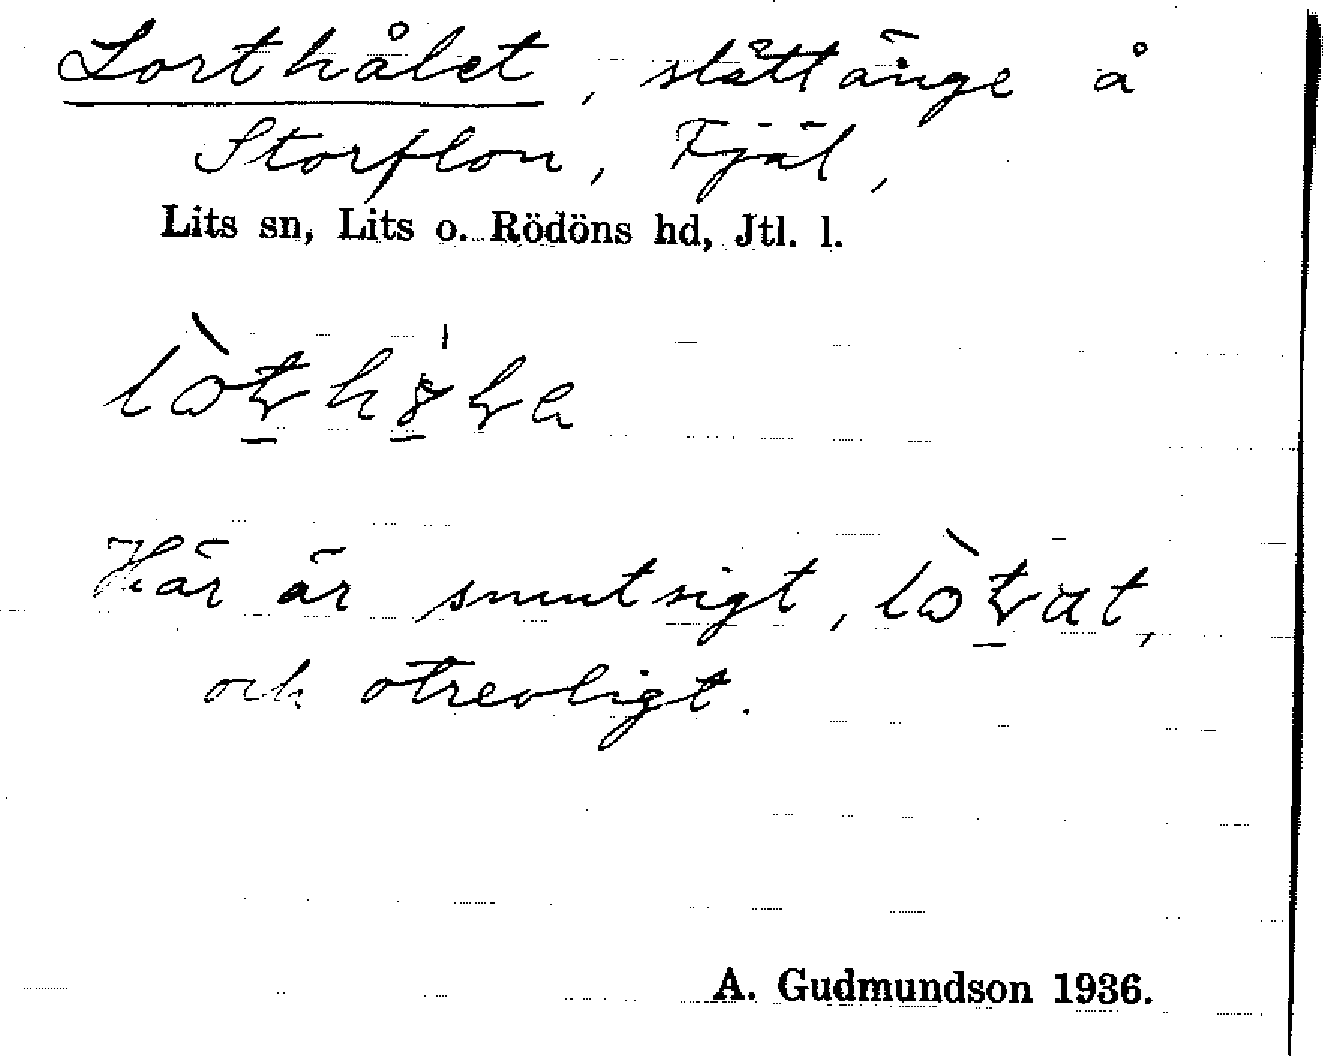 Lorthålet, slåttänge å
Storflon, Fjäl,
Lits sn, Lits o. Rödöns hd, Jtl. l.
Här är smutsigt,
och otrevligt.
A. Gudmundson 1936.